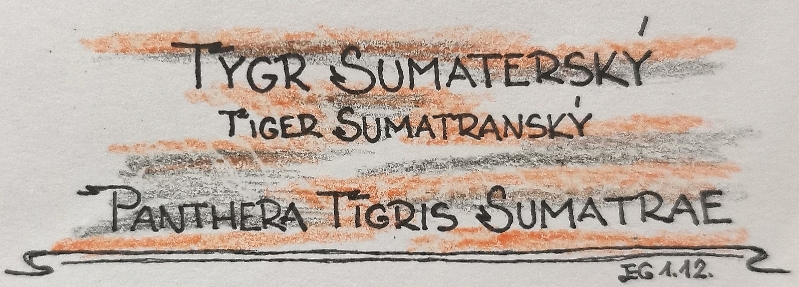 TYGR SUMATERSKÝ
TIGER SUMATRANSKÝ
PANTHERA TIGRIS SUMATRAE
EG 1.12.